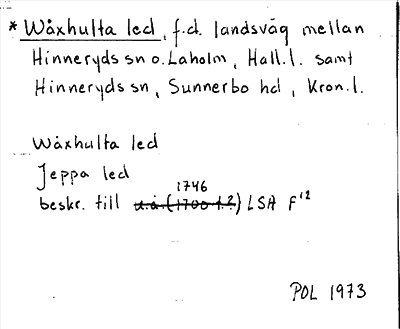 * Wåxhulta led, f.d. landsväg mellan
Hinneryds sn o. Laholm, Hall.l. samt
Hinneryds sn, Sunnerbo hd, Kron.l.
Wåxhulta led
Jeppa led
1746
beskr. till u.å. (1700 t.?) LSA F¹²
POL 1973